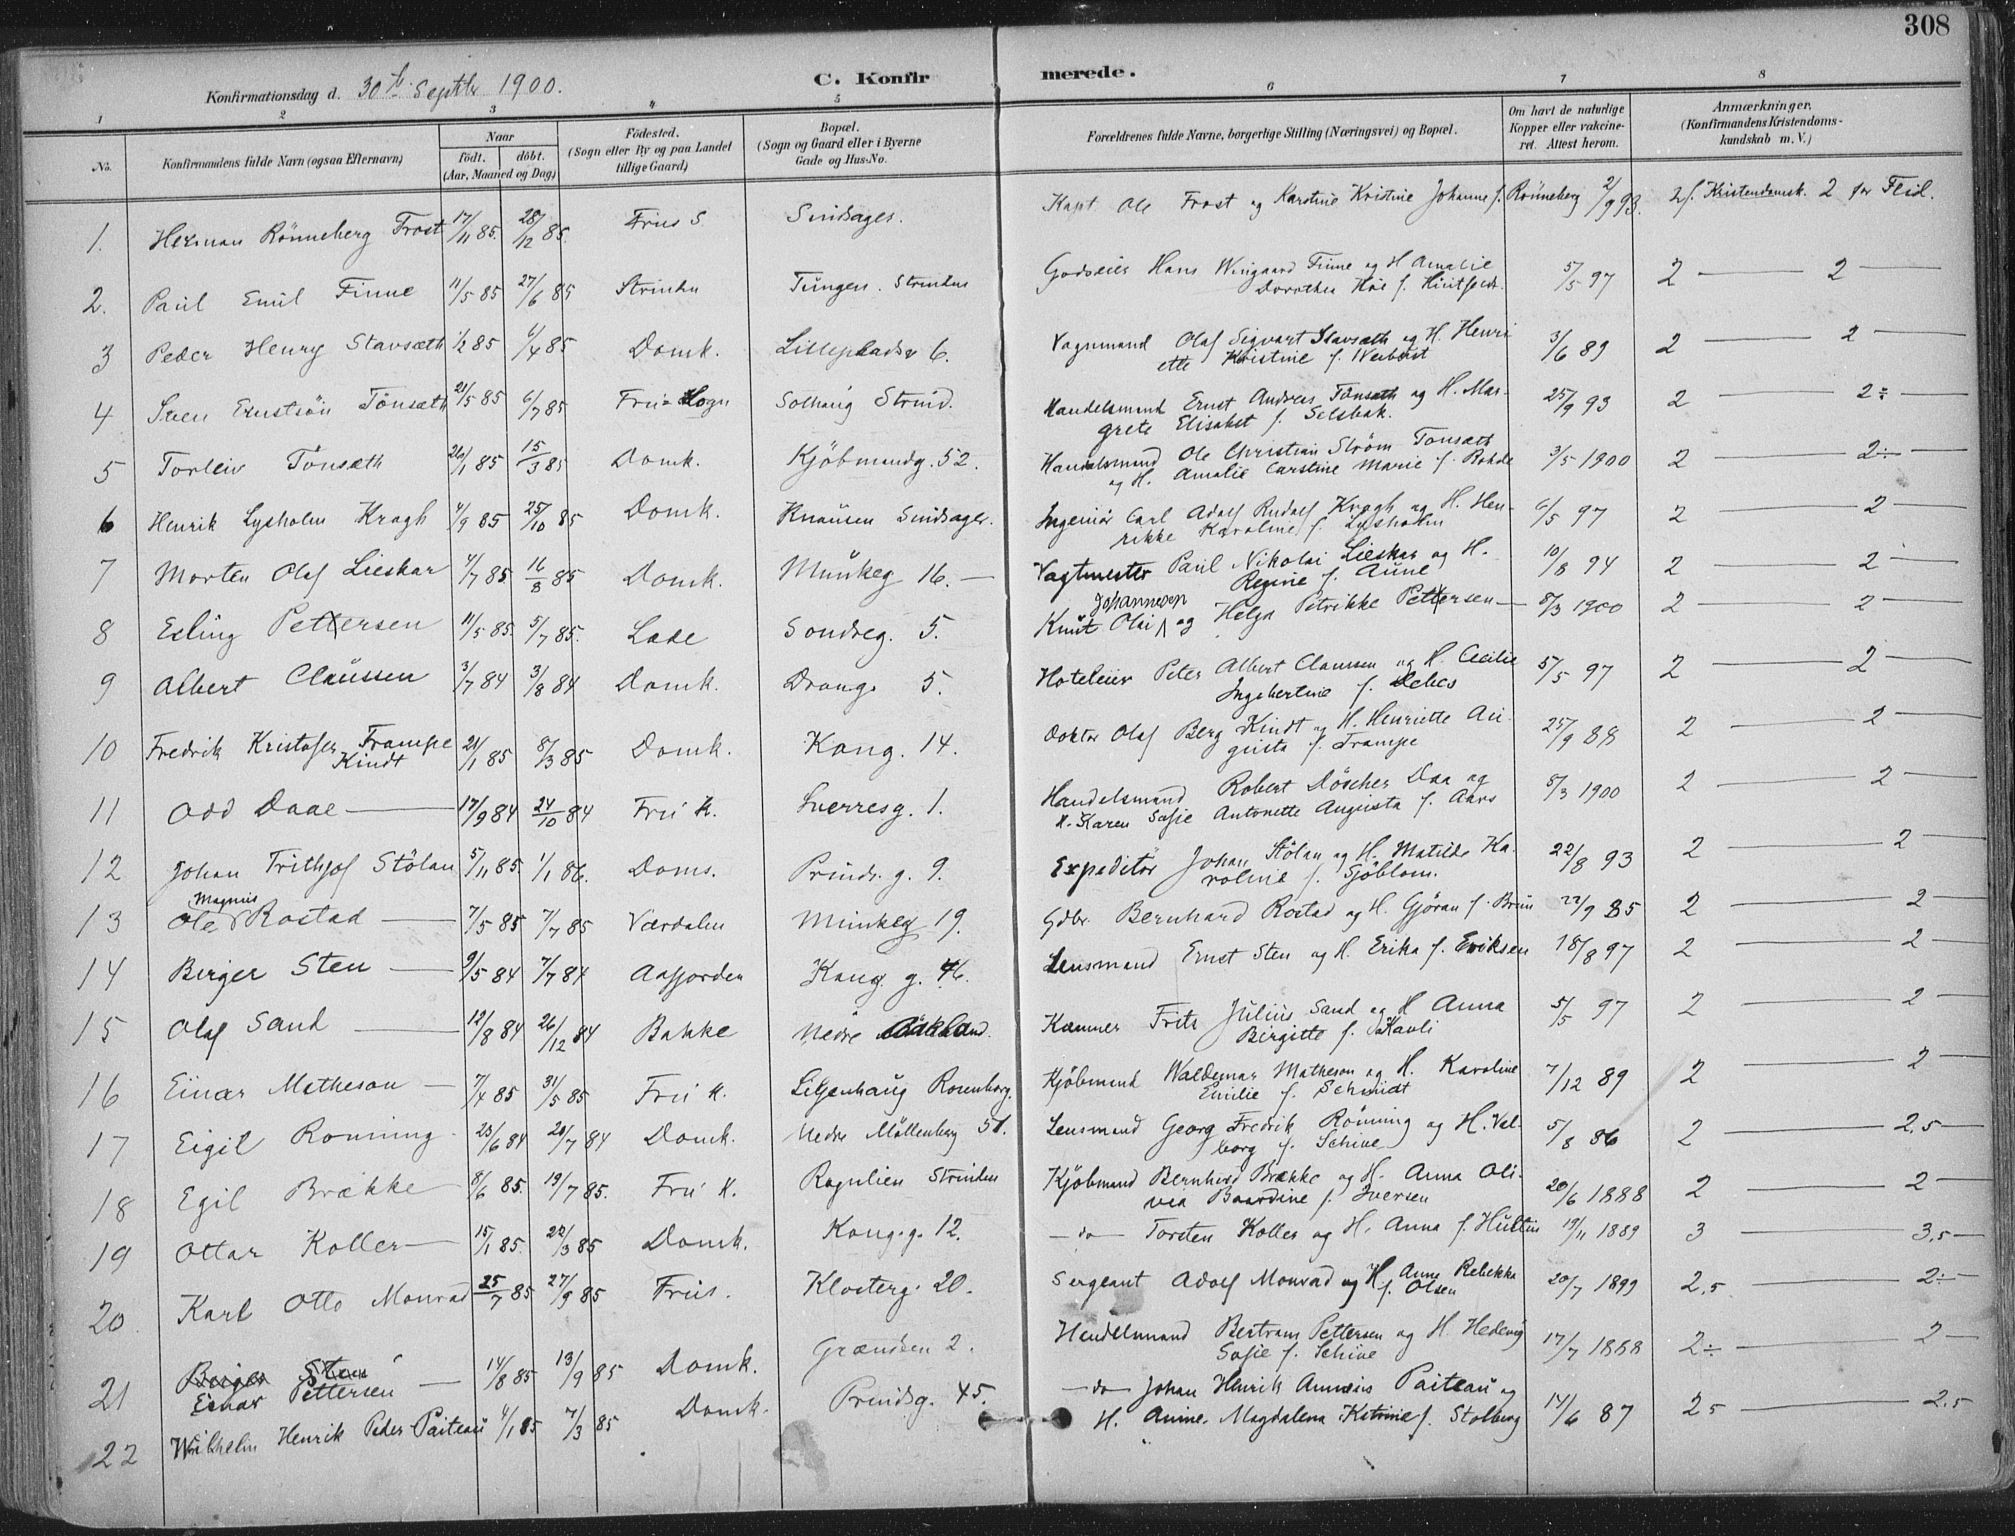 308
Konfirmationsdag d. 30te Septbr 1900.
C. Konfirmerede.
1 2 3 4 5 6 7 8
No.
Konfirmandens fulde Navn (ogsaa Efternavn)
Naar
født. døbt.
(Aar, Maaned og Dag)
Fødested.
(Sogn eller By og paa Landet
tillige Gaard)
Bopæl.
(Sogn og Gaard eller i Byerne
Gade og Hus-No.
Forældrenes fulde Navne, borgerlige Stilling (Næringsvei) og Bopæl.
Om havt de naturlige
Kopper eller vakcine-
ret. Attest herom.
Anmærkninger.
(Konfirmandens Kristendoms-
kundskab m. V.)
1. Herman Rönneberg Frost 17/11 85 28/12 85. Frues S Sindsager. Kapt Ole Frost og Karstine Kristine Johanne f. Rönneberg 2/9 93. 2 f. Kristendomsk. 2 for Flid.
2. Paul Emil Finne 11/5 85 27/6 85 Strinden Tungen. Strinden Godseier Hans Wingaard Finne og H Amalie
Dorothea Höe f. 5/5 97 2 — 2 —
3 Peder Henry Stavsæth 1/2 85 6/4 85 Domk. 6. Vognmand Olaf Sigvart Stavsæth og H. Henri
ette Kristine f. 3/6 89 2 — 2 —
4 Sven Ernstsön Tönsæth 21/5 85 6/7 85 Frue Sogn Solhaug Strind. Handelsmand Ernst Andreas Tönsæth og H. Mar-
grete Elisabet f. Selsbak. 25/9 93 2 — 2÷
5 Torleiv Tönsæth 26/1 85 15/3 85 Domk. Kjöbmandg. 52. Handelsmand Ole Christian Ström Tonsæth
og H. Amalie Carstine Marie f. Rohde 3/5 1900 2 — 2÷
6 Henrik Lysholm Kragh 4/9 85 25/10 85 Domk. Knausen Sindsager. Ingeniör Carl Adolf Rudolf Kragh og H. Hen-
rikke Karoline f. Lysholm 6/5 97 2 — 2 —
7 Morten Olaf Lieskar 4/7 85 16/8 85 Domk. Munkeg 16. — Vagtmester Paul Nikolai Lieskar og H.
Regine f. Aune 10/8 94 2 — 2 —
8 Esling Pettersen 11/5 85. 5/7 85. Lade Sondreg. 5. Johannesen
Knut Olai og Helga Petrikke Pettersen — 8/3 1900 2 — 2 —
9 Albert Claussen 3/7 84 3/8 84 Domk. Drongs 5. Hoteleier Peter Albert Claussen og H. Cecilie
Ingebertine f. Debes 5/5 97 2 — 2 —
10 Fredrik Kristofer Trampe
Kindt 21/1 85 8/3 85 Domk. Kong. 14. Doktor Olaf Berg Kindt og H. Henriette Au-
gusta f. Trampe 25/9 88 2 — 2 —
11 Odd Daae — 17/9 84 24/10 84 Fru K. Sverresg. 1. Handelsmand Robert Döscher Daa og
H. Karen Sofie Antonette Augusta f. Aars 8/3 1900 2 — 2 —
12 Johan Frithjof Stölan 5/11 85. 1/1 86. Doms. Prinds. g. 9. Expeditör Johan Stölan og H. Matilde Ka-
roline f. Sjöblom. 22/8 93 2 — 2 —
Magnus
13 Ole Rostad — 7/5 85 7/7 85 Værdalen Munkeg 19. Gdbr. Bernhard Rostad og H. Gjöran f. Brun 22/9 85 2 — 2 —
14 Birger Sten — 9/5 84 7/7 84 Aafjorden Kong. g. 46. Lensmand Ernst Sten og H. Erika f. Eriksen 18/8 97 2 — 2 —
15 Olaf Sand — 12/8 84 26/12 84 Bakke Nedre Bakland. Kæmner Fritz Julius Sand og H Anna
Birgitte f. Kavli 5/5 97 2 — 2 —
16 Einar Matheson — 7/4 85 31/5 85 Fru K. Liljenhaug Rosenborg. Kjöbmand Waldemar Matheson og H. Karoline
Emilie f. Schmidt 7/12 89 2 — 2 —
17 Eigil Ronning 23/6 84 20/7 84 Domk. Nedre Möllenberg 51. Lensmand Georg Fredrik Rönning og H. Val-
borg f. Schive 5/8 86 2 — 2.5 —
18 Egil Brække 8/6 85. 19/7 85. Fru K. Rognlien Strinden Kjöbmand Bernhard Brække og H. Anna Oli-
vea Baardine f. Iversen 20/6 1888 2 — 2 —
19 Ottar Koller — 15/1 85. 22/3 85 Domk. Kong.g. 12. — do — Torsten Koller og H. Anna f. Hultin 19/11 1889 3 — 3,5 —
20 Karl Otto Monrad 25/7 85 27/9 85 Frus. Klosterg. 20. Sergeant Adolf Monrad og H. Anne Rebekka
f. Olsen 20/7 1899 2,5 — 2÷ —
21 Birger Sten
Einar Pettersen — 14/8 85 13/9 85 Domk. Grændsen 2. Handelsmand Bertram Pettersen og H. Hedevig
Sofie f. Schive 17/7 1888 2÷ — 2 —
22 Wilhelm Henrik Peder Paiteau 4/1 85 7/3 85 Domk. Prindsg. 45. — do — Johan Henrik Paiteau og
H. Anine Magdalena Katrine f. Stolberg 14/6 87 2 5 — 2.5